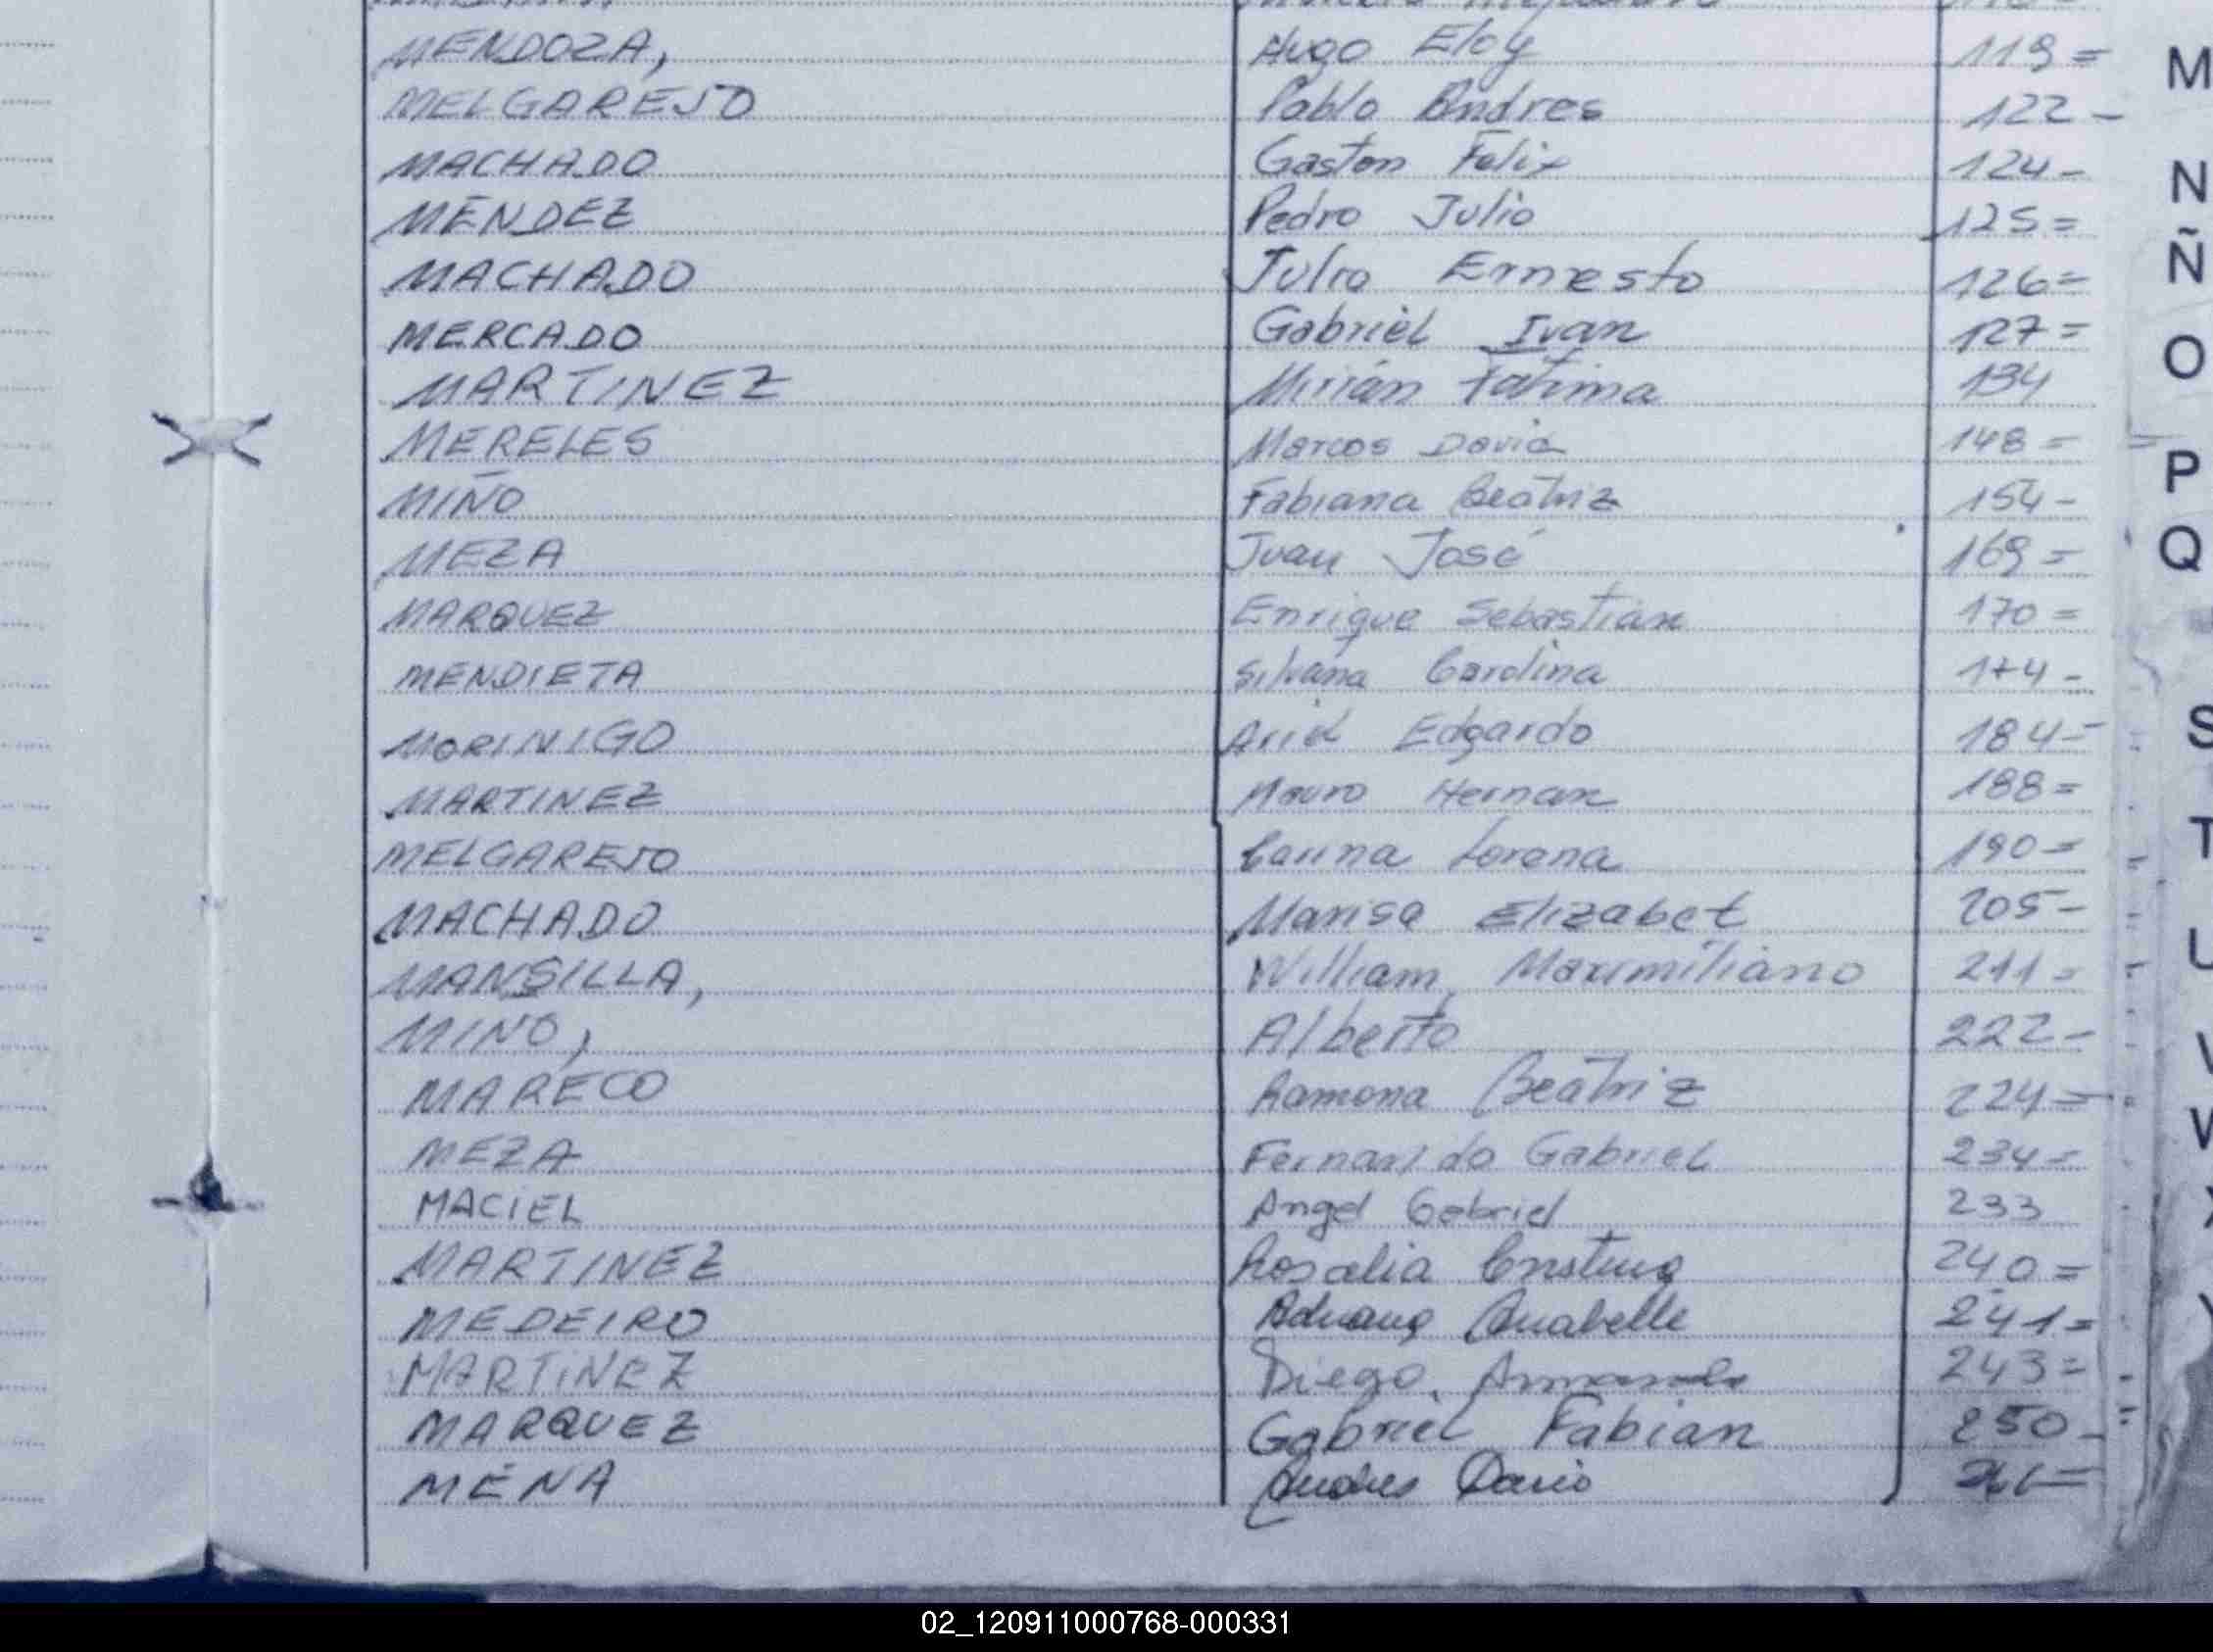 MENDOZA, Hugo Eloy 119=
MELGAREJO Pablo Andres 122-
MACHADO Gaston Felix 124-
MENDEZ Pedro Julio 125=
MACHADO Julio Ernesto 126=
MERCADO Gabriel Ivan 127=
MARTINEZ Mirián Fatima 134
MERELES Marcos David 148=
MIÑO Fabiana Beatriz 154-
MEZA Juan José 169=
MARQUEZ Enrique Sebastian 170=
MENDIETA Silvana Carolina 174-
MORINIGO Ariel Edgardo 184=
MARTINEZ Mauro Hernan 188=
MELGAREJO Carina Lorena 190=
MACHADO Marisa Elizabet 205-
MANSILLA, William Maximiliano 211=
MINO, Alberto 222-
MARECO Ramona Beatriz 224=
MEZA Fernando Gabriel 234=
MACIEL Angel Gabriel 233
MARTINEZ Rosalia Cristina 240=
MEDEIRO Adriana Anabelle 241=
MARTINEZ Diego Armando 243=
MARQUEZ Gabriel Fabian 250-
MENA Andres Dario
M
N
Ñ
O
P
Q
S
T
U
V
W
X
Y
02_120911000768-000331